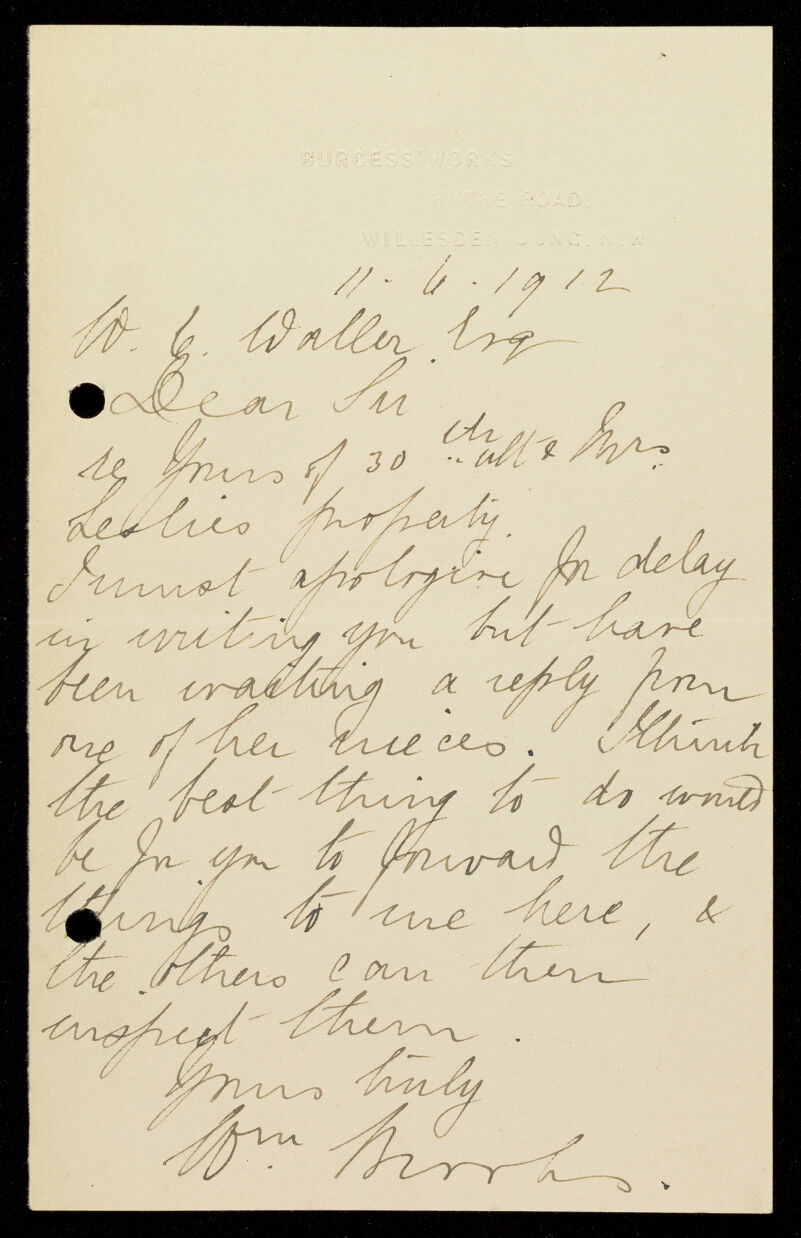 BURGESS' WORKS
HYTHE ROAD,
WILLESDEN JUNC. N.W
11 - 6 - 1912
W. C. Waller Esq
Dear Sir
re Yours of 30th ult & Mrs
Leslies property.
I must apologise for delay
in writing you but have
been waiting a reply from
one of her nieces. I think
the best thing to do would
be for you to forward the
things to me here, &
the others can then
inspect them.
Yours truly
Wm. Brooks.